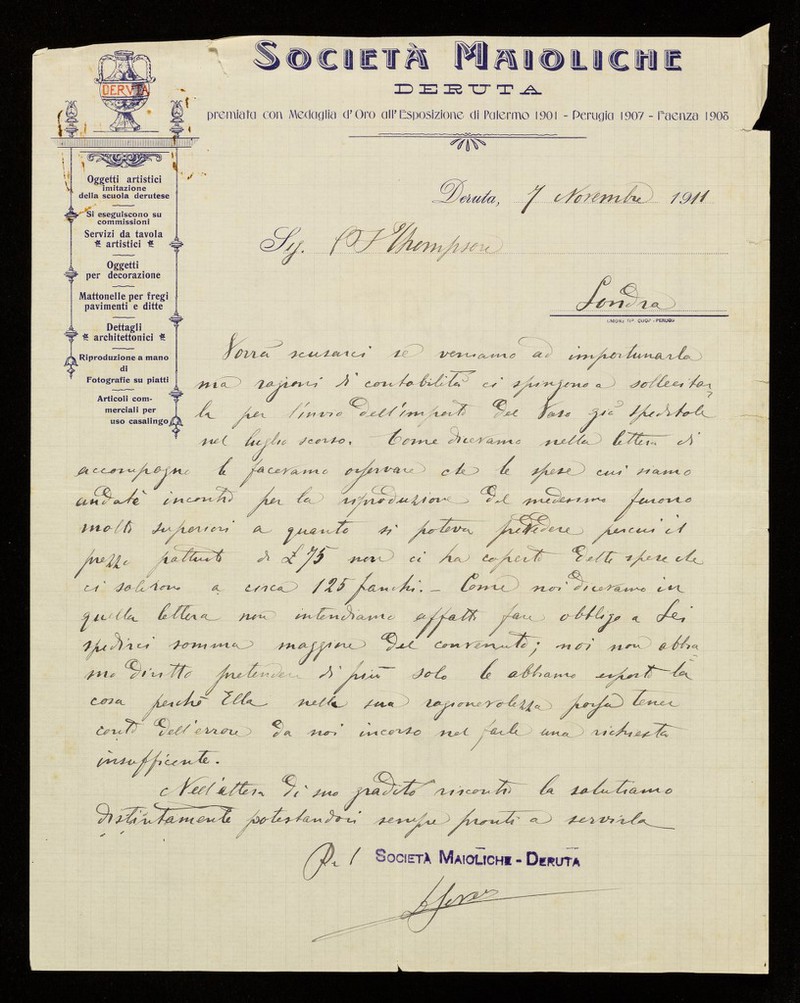 SOCIETÀ MAIOLICHE
DERUTA
premiata con Medaglia d'Oro all'Esposizione di Palermo 1901 - Perugia 1907 - Faenza 1908
DERVTA
Oggetti artistici
imitazione
della scuola derutese
Si eseguiscono su
commissioni
Servizi da tavola
artistici
Oggetti
per decorazione
Mattonelle per fregi
pavimenti e ditte
Dettagli
architettonici
Riproduzione a mano
di
Fotografie su piatti
Articoli com-
merciali per
uso casalingo
Deruta, 7 Novembre 1911
Sig. Thompson
Londra
UNIONE TIP. COOP. - PERUGIA
Vorrà scusarci se veniamo ad importunarla
ma ragioni di contabilità ci spingono a sollecitar
la per l'invio dell'importo del Vaso già speditole
nel luglio scorso. Come dicevamo nella lettera di
accompagno le facevamo osservare che le spese cui siamo
andate incontro per la riproduzione del medesimo furono
molto superiori a quanto si poteva prevedere percui il
prezzo pattuito di £ 75 non ci ha coperto delle spese che
ci salirono a circa 125 franchi. - Come noi dicevamo in
quella lettera non intendiamo affatto fare obbligo a Lei
spedirci somma maggiore del convenuto; noi non abbia
mo diritto pretendere di più solo le abbiamo esposto la
cosa perché Ella nella sua ragionevolezza possa tener
conto dell'errore da noi incorso nel farle una richiesta
insufficente.
Nell'attesa di suo gradito riscontro la salutiamo
distintamente potestandoci sempre pronti a servirla
SOCIETÀ MAIOLICHE - DERUTA